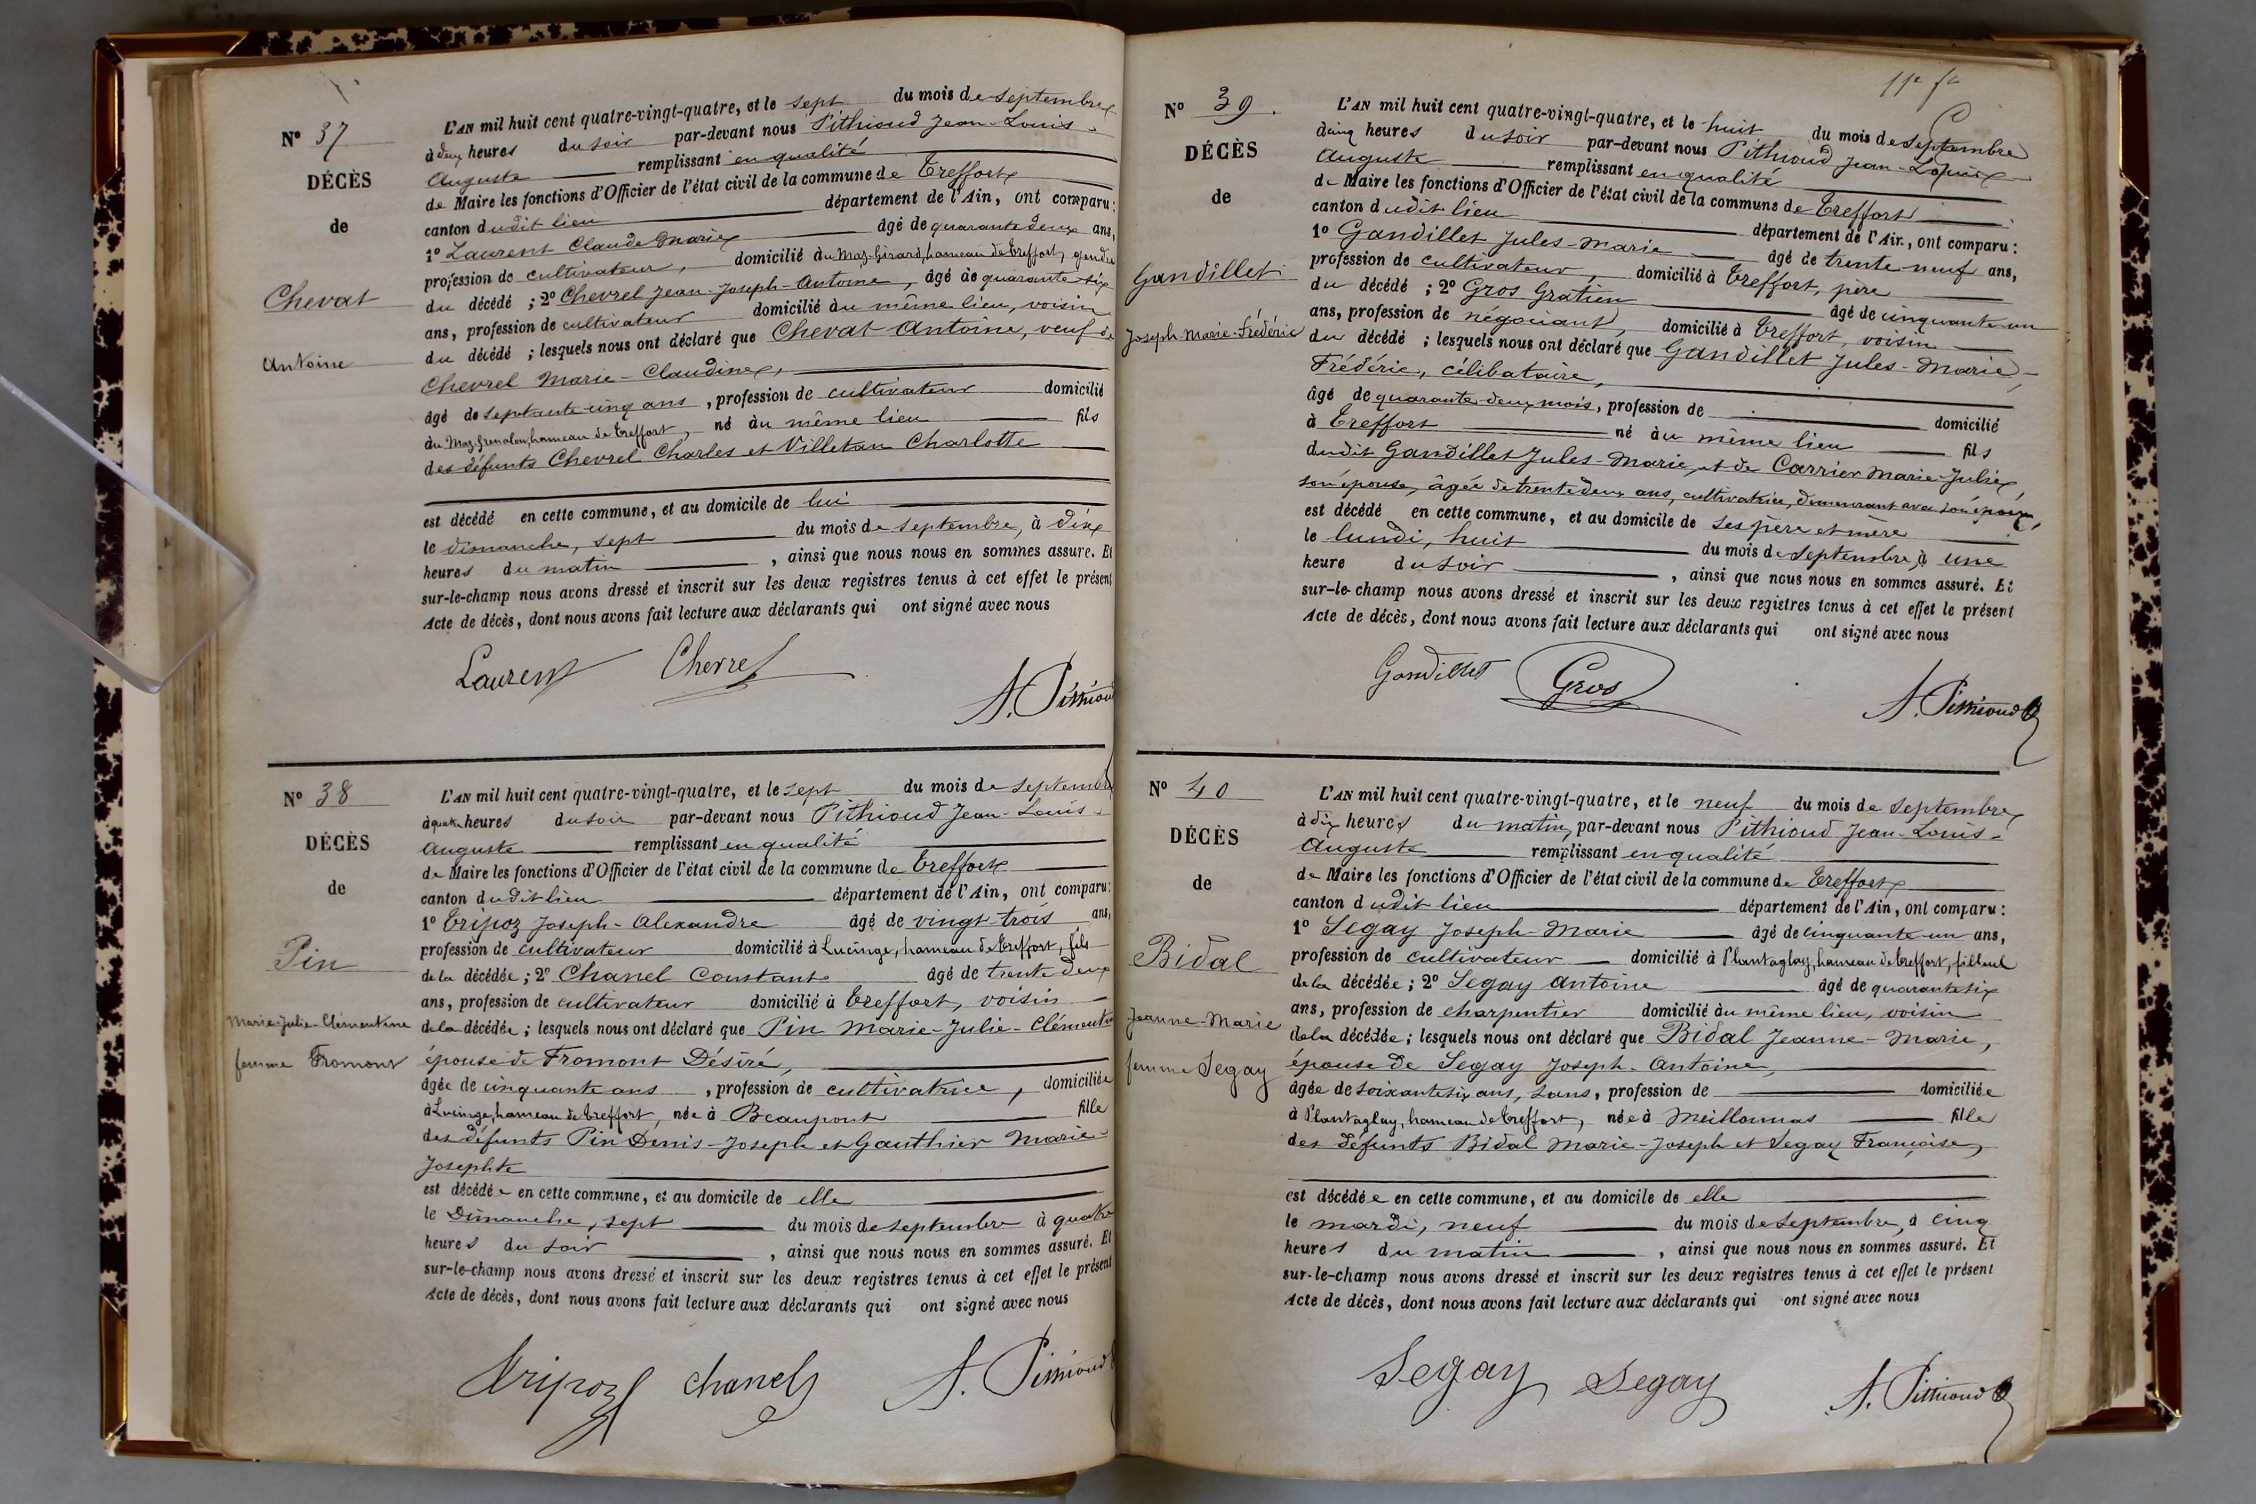 Nº 37
DÉCÈS
de
Chevat
Antoine
L'AN mil huit cent quatre-vingt-quatre, et le sept du mois de septembre
à deux heures du soir par-devant nous Pithioud Jean-Louis-
Auguste remplissant en qualité
de Maire les fonctions d'Officier de l'état civil de la commune de Treffort
canton dudit lieu département de l'Ain, ont comparu:
1º Laurent Claude Marie âgé de quarante deux ans,
profession de cultivateur, domicilié au Mas-Girard, hameau de Treffort, gendre
du décédé ; 2º Chevrel Jean-Joseph-Antoine, âgé de quarante-six
ans, profession de cultivateur domicilié au même lieu, voisin
du décédé ; lesquels nous ont déclaré que Chevat Antoine, veuf de
Chevrel Marie-Claudine,
âgé de septante cinq ans, profession de cultivateur domicilié
au hameau de Treffort, né au même lieu fils
des défunts Chevrel Charles et Villetan Charlotte
est décédé en cette commune, et au domicile de lui
le dimanche, sept du mois de septembre, à dix
heures du matin, ainsi que nous nous en sommes assuré. Et
sur-le-champ nous avons dressé et inscrit sur les deux registres tenus à cet effet le présent
Acte de décès, dont nous avons fait lecture aux déclarants qui ont signé avec nous
Laurent Chevrel
A. Pithioud
Nº 38
DÉCÈS
de
Pin
Marie-Julie-Clémentine
femme Fromont
L'AN mil huit cent quatre-vingt-quatre, et le sept du mois de septembre
à quatre heures du soir par-devant nous Pithioud Jean-Louis-
Auguste remplissant en qualité
de Maire les fonctions d'Officier de l'état civil de la commune de Treffort
canton dudit lieu département de l'Ain, ont comparu:
1º Tripoz Joseph-Alexandre âgé de vingt-trois ans,
profession de cultivateur domicilié à Lucinge, hameau de Treffort, fils
de la décédée ; 2º Chanel Constant âgé de trente deux
ans, profession de cultivateur domicilié à Treffort, voisin
de la décédée ; lesquels nous ont déclaré que Pin Marie-Julie-Clémentine
épouse de Fromont Désiré,
âgée de cinquante ans, profession de cultivatrice, domiciliée
à Lucinge, hameau de Treffort, née à Beaupont fille
des défunts Pin Denis-Joseph et Gauthier Marie-
Josephte
est décédée en cette commune, et au domicile de elle
le Dimanche, sept du mois de septembre à quatre
heures du soir, ainsi que nous nous en sommes assuré. Et
sur-le-champ nous avons dressé et inscrit sur les deux registres tenus à cet effet le présent
Acte de décès, dont nous avons fait lecture aux déclarants qui ont signé avec nous
Tripoz Chanel A. Pithioud
Nº 39.
DÉCÈS
de
Gandillet
Joseph-Marie-Frédéric
L'AN mil huit cent quatre-vingt-quatre, et le huit du mois de septembre
à cinq heures du soir par-devant nous Pithioud Jean-Louis-
Auguste remplissant en qualité
de Maire les fonctions d'Officier de l'état civil de la commune de Treffort
canton dudit lieu département de l'Ain, ont comparu :
1º Gandillet Jules-Marie âgé de trente-neuf ans,
profession de cultivateur, domicilié à Treffort, père
du décédé ; 2º Gros Gratien âgé de cinquante-un
ans, profession de négociant, domicilié à Treffort, voisin
du décédé ; lesquels nous ont déclaré que Gandillet Jules-Marie-
Frédéric, célibataire,
âgé de quarante-deux mois, profession de domicilié
à Treffort né au même lieu fils
dudit Gandillet Jules-Marie, et de Carrier Marie-Julie,
son épouse, âgée de trente deux ans, cultivatrice, demeurant avec son époux,
est décédé en cette commune, et au domicile de ses père et mère
le lundi, huit du mois de septembre, à une
heure du soir, ainsi que nous nous en sommes assuré. Et
sur-le-champ nous avons dressé et inscrit sur les deux registres tenus à cet effet le présent
Acte de décès, dont nous avons fait lecture aux déclarants qui ont signé avec nous
Gandillet Gros
A. Pithioud
Nº 40
DÉCÈS
de
Bidal
Jeanne-Marie
femme Segay
L'AN mil huit cent quatre-vingt-quatre, et le neuf du mois de septembre
à dix heures du matin, par-devant nous Pithioud Jean-Louis-
Auguste remplissant en qualité
de Maire les fonctions d'Officier de l'état civil de la commune de Treffort
canton dudit lieu département de l'Ain, ont comparu :
1º Segay Joseph-Marie âgé de cinquante-un ans,
profession de cultivateur domicilié à Plantaglay, hameau de Treffort, filleul
de la décédée ; 2º Segay Antoine âgé de quarante six
ans, profession de charpentier domicilié au même lieu, voisin
de la décédée ; lesquels nous ont déclaré que Bidal Jeanne-Marie,
épouse de Segay Joseph-Antoine,
âgée de soixante six ans, sans, profession de domiciliée
à Plantaglay, hameau de Treffort, née à Meillonnas fille
des défunts Bidal Marie-Joseph et Segay Françoise,
est décédée en cette commune, et au domicile de elle
le mardi, neuf du mois de septembre, à cinq
heures du matin, ainsi que nous nous en sommes assuré. Et
sur-le-champ nous avons dressé et inscrit sur les deux registres tenus à cet effet le présent
Acte de décès, dont nous avons fait lecture aux déclarants qui ont signé avec nous
Segay Segay
A. Pithioud